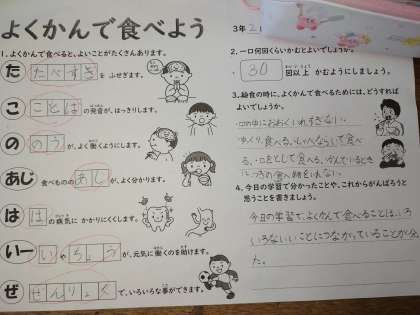 よくかんで食べよう
1. よくかんで食べると、よいことがたくさんあります。
た たべすぎ を ふせぎます。
こ ことば の発音が、はっきりします。
の のう が、よく働くようにします。
あじ 食べものの あじ が、よく分かります。
は は の病気に かかりにくくします。
いー い や ちょう が、元気に働くのを助けます。
ぜ ぜんりょく で、いろいろな事ができます。
3年2
2. 一口何回くらいかむとよいでしょうか。
30 回以上 かむようにしましょう。
3. 給食の時に、よくかんで食べるためには、どうすれば
よいでしょうか。
・口の中におおくいれすぎない。
・ゆっくり食べる。
食べる。・口をとじて食べる。・かんでいるとき
食べ物をいれない。
4. 今日の学習で分かったことや、これからがんばろうと
思うことを書きましょう。
今日の学習で、よくかんで食べることは、いろ
いろないいことにつながっていることが分かっ
た。